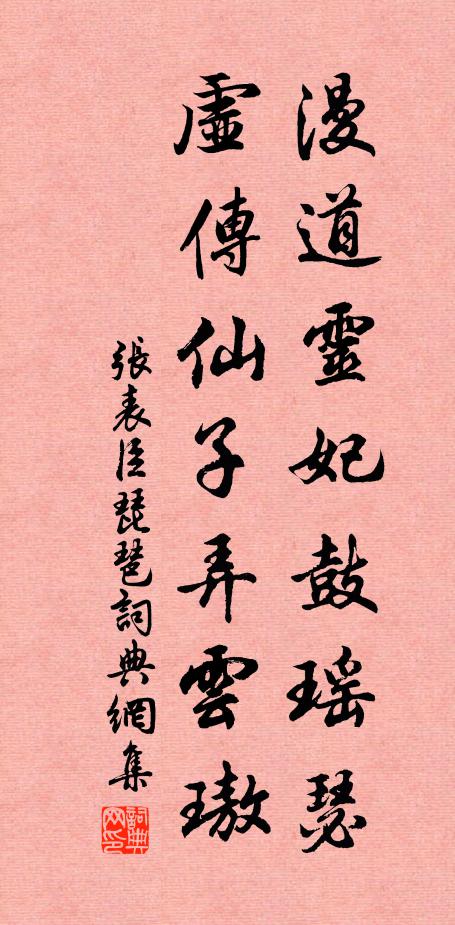 漫道靈妃鼓瑶瑟
虛傳仙子弄雲璈
張表臣琵琶詞典網集
詞典网印